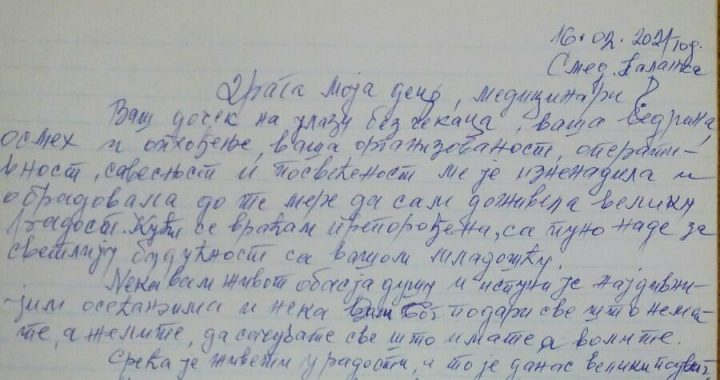 16.02.2021 год.
Смед. Паланка
Драга моја децо, медицинари!
Ваш дочек на улазу без чекања, ваша ведрина,
осмех и опхођење, ваша организованост, операти-
вност, савесност и посвећеност ме је изненадила и
обрадовала до те мере да сам доживела велику
радост. Кући се враћам препорођена, са пуно наде за
светлију будућност са вашом младошћу.
Нека вам живот обасја душу и испуни је најдивни-
јим осећањима и нека Вам Бог подари све што нема-
те, а желите, да сачувате све што имате а волите.
Срећа је живети у радости, и то је данас велики подвиг,